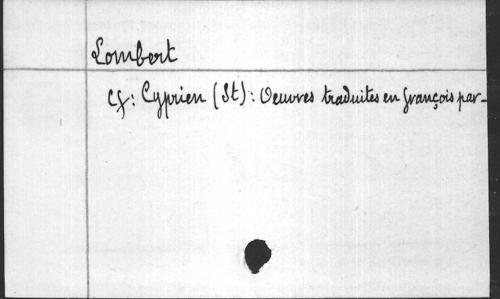 Lombert
cf: Cyprien (St): Oeuvres traduites en françois par_